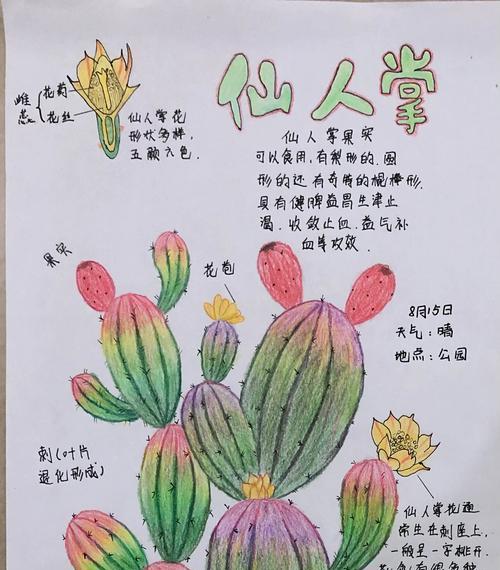 仙人掌
雌蕊
花药
花丝
仙人掌花
形状多样,
五颜六色.
仙人掌果实
可以食用,有梨形的.圆
形的还有奇特的棍棒形.
具有健脾益胃生津止
渴.收敛止血.益气补
血等功效.
果实
花苞
8月15日
天气:晴
地点:公园
刺(叶片
退化形成)
仙人掌花通
常生在刺座上,
一般是一字排开.